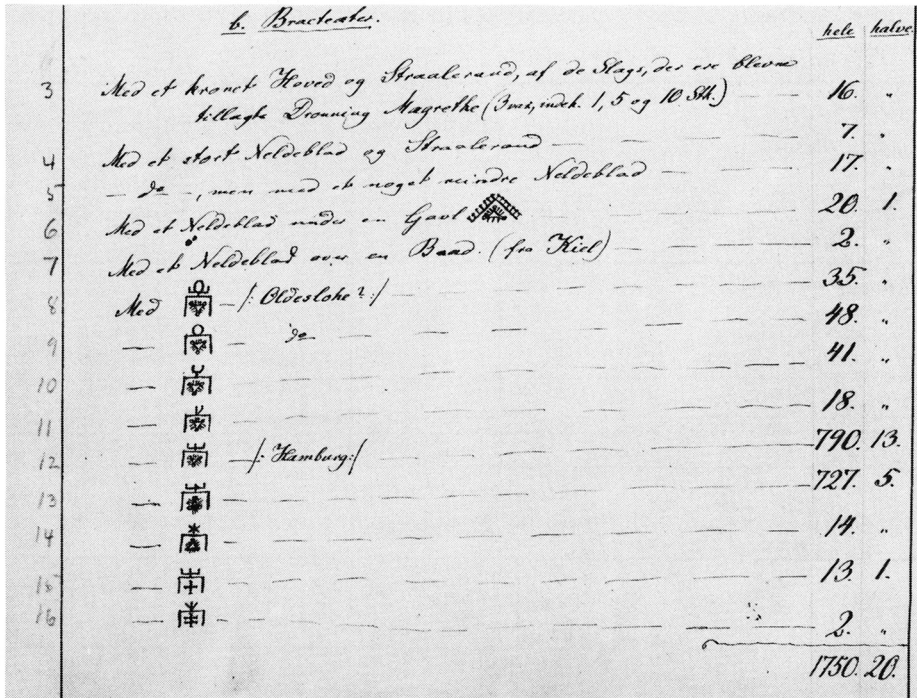 b. Bracteater.
hele halve.
3 Med et kronet Hoved og Straalerand, af de Slags, der ere blevne
tillagte Dronning Magrethe (3 var., indeh. 1, 5 og 10 Stk.) 16. "
4 Med et stort Neldeblad og Straalerand 7. "
5 — do —, men med et noget mindre Neldeblad 17. "
6 Med et Neldeblad under en Gavl 20. 1.
7 Med et Neldeblad over en Baad. (fra Kiel) 2. "
8 Med /: Oldeslohe?:/ 35. "
9 — do 48. "
10 — 41. "
11 — 18. "
12 — /: Hamburg:/ 790. 13.
13 — 727. 5.
14 — 14. "
15 — 13. 1.
16 — 2. "
1750. 20.